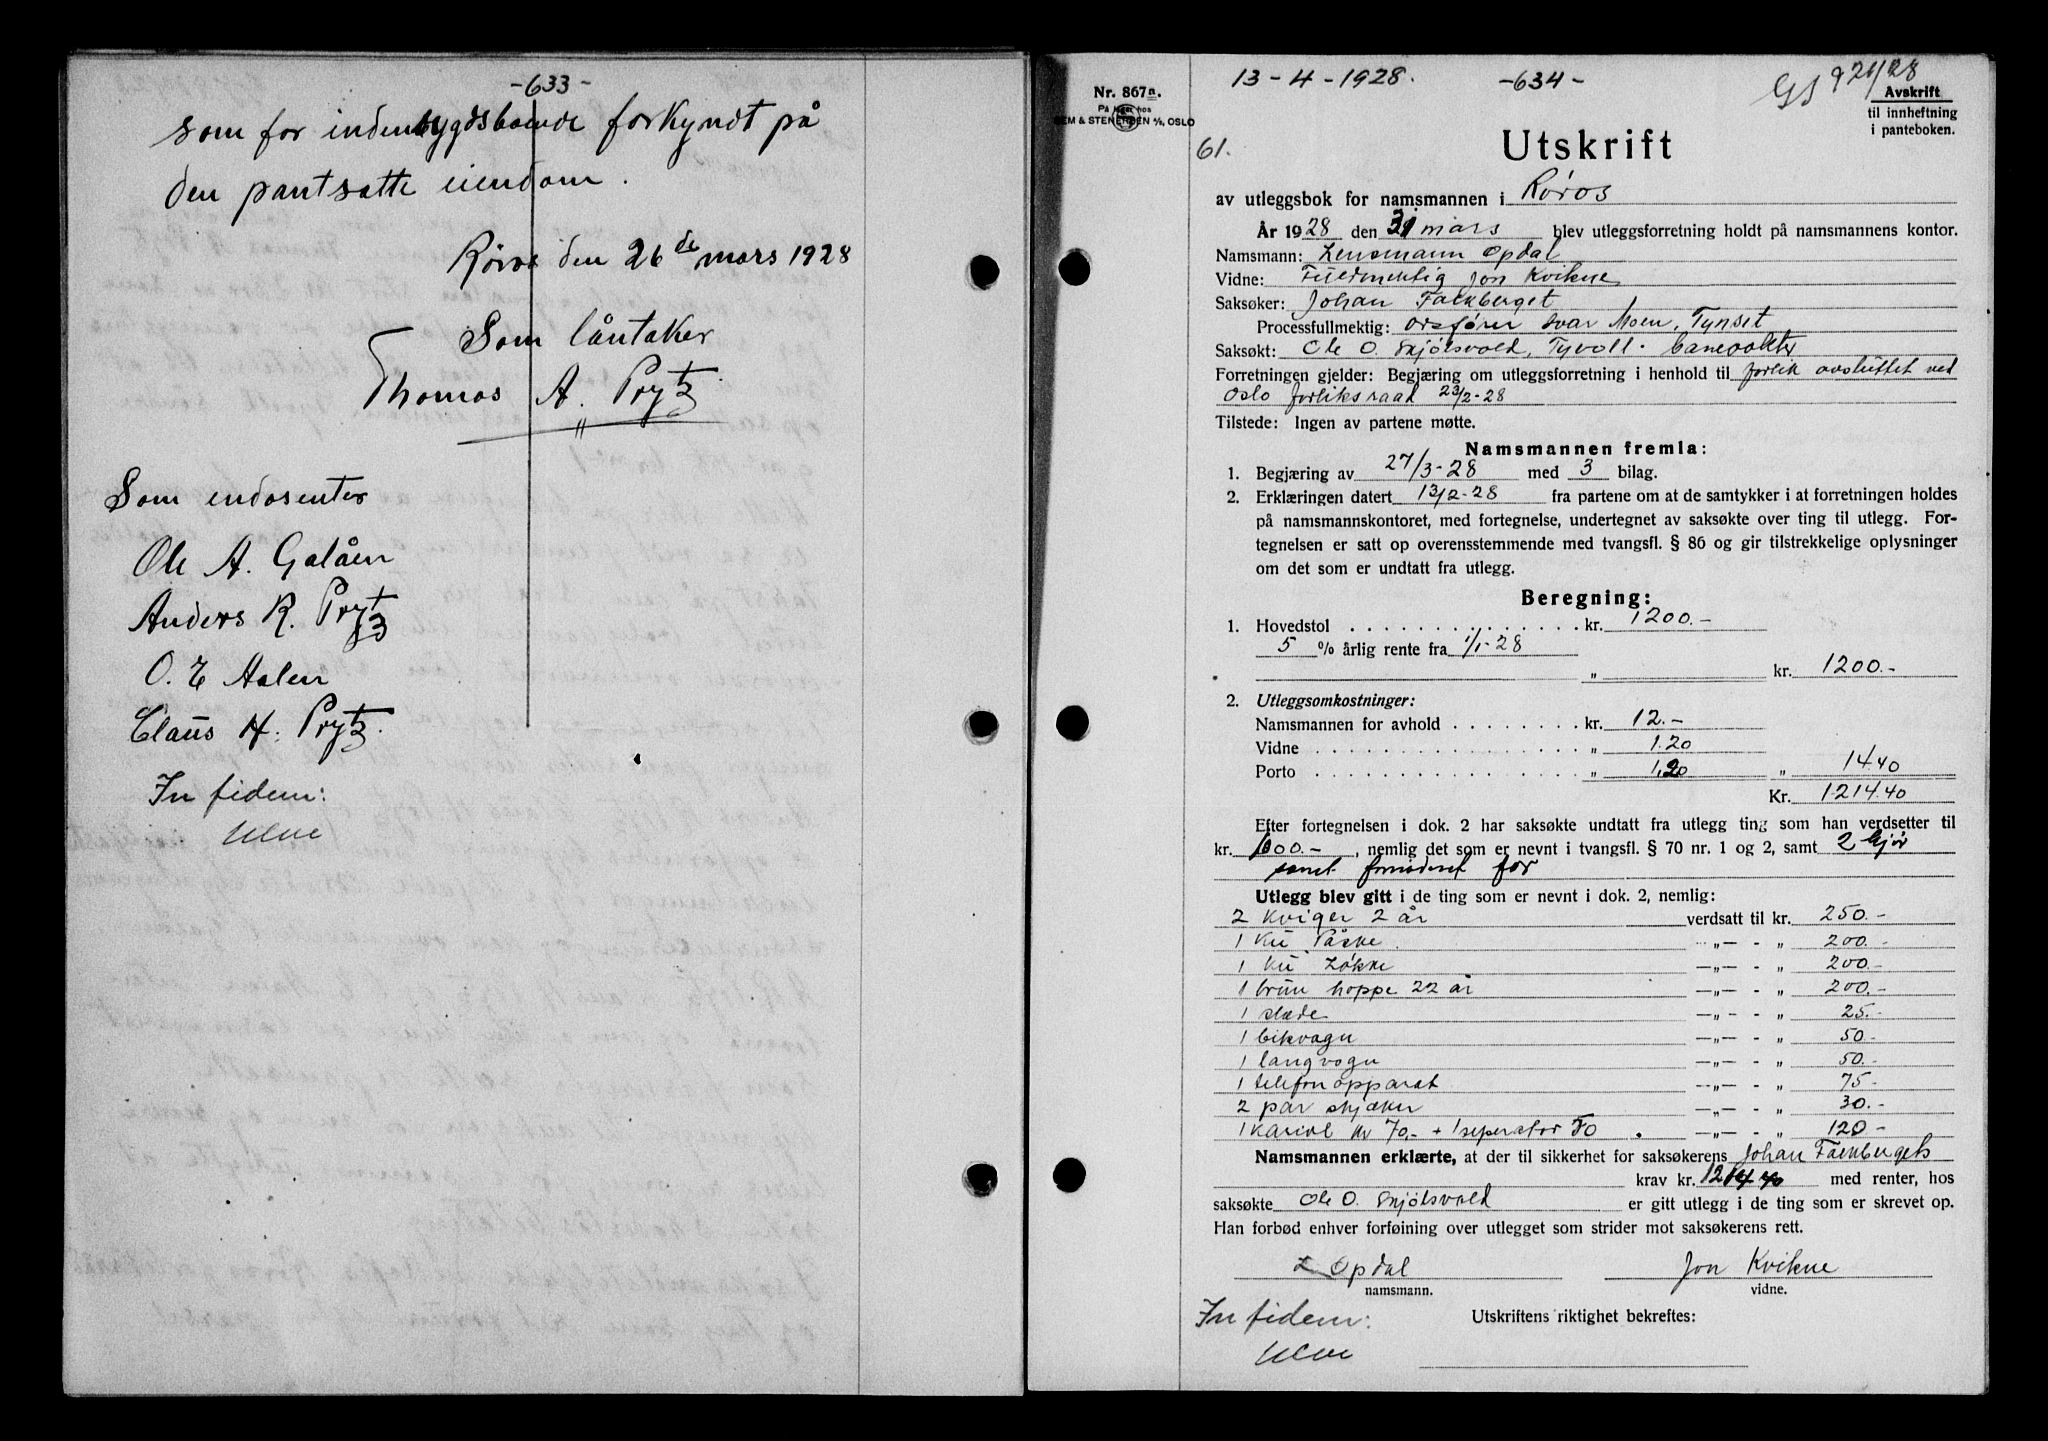 -633-
som for indenbygdsboende forkyndt på
den pantsatte eiendom.
Røros den 26de mars 1928
Som låntaker
Thomas A. Prytz
"
Som endosenter
Ole A. Galåen
Anders R. Prytz
O. E Aalen
Claus H. Prytz.
In fidem:
Nr. 867a.
På lager hos
SEM & STENERSEN A/S, OSLO
13-4-1928. -634- 921/28
Avskrift
til innheftning
i panteboken.
61.
Utskrift
av utleggsbok for namsmannen i Røros
År 1928 den 31 mars blev utleggsforretning holdt på namsmannens kontor.
Namsmann: Lensmann Opdal
Vidne: Fuldmektig Jon Kvikne
Saksøker: Johan Falkberget
Processfullmektig: Ordfører Ivar Moen, Tynset
Saksøkt: Ole O. Skjølsvold, Tyvoll. banevokter
Forretningen gjelder: Begjæring om utleggsforretning i henhold til forlik avsluttet ved
Oslo forliksraad 23/2-28
Tilstede: Ingen av partene møtte.
Namsmannen fremla:
1. Begjæring av 27/3-28 med 3 bilag.
2. Erklæringen datert 13/2-28 fra partene om at de samtykker i at forretningen holdes
på namsmannskontoret, med fortegnelse, undertegnet av saksøkte over ting til utlegg. For-
tegnelsen er satt op overensstemmende med tvangsfl. § 86 og gir tilstrekkelige oplysninger
om det som er undtatt fra utlegg.
Beregning:
1. Hovedstol kr. 1200.-
5 % årlig rente fra 1/1-28
" kr. 1200.-
2. Utleggsomkostninger:
Namsmannen for avhold kr. 12.-
Vidne " 1.20
Porto " 1.20 " 14.40
Kr. 1214.40
Efter fortegnelsen i dok. 2 har saksøkte undtatt fra utlegg ting som han verdsetter til
kr. 1000.-, nemlig det som er nevnt i tvangsfl. § 70 nr. 1 og 2, samt 2 kjør
samt fornødent for
Utlegg blev gitt i de ting som er nevnt i dok. 2, nemlig:
2 Kviger 2 år verdsatt til kr. 250.-
1 ku Påske. -"- - " 200.-
1 ku Løkke -"- - " 200.-
1 brun hoppe 22 år -"- - " 200.-
1 slæde -"- - " 25.-
1 bikvagn -"- - " 50.-
1 langvogn -"- - " 50.-
1 telefonapparat -"- - " 75-
2 par skjæker -"- - " 30.-
1 Kariol kr 70.- + 1 seperator 50 -"- - " 120-
Namsmannen erklærte, at der til sikkerhet for saksøkerens Johan Falkbergets
krav kr. 1214.40 med renter, hos
saksøkte Ole O. Skjølsvold er gitt utlegg i de ting som er skrevet op.
Han forbød enhver forføining over utlegget som strider mot saksøkerens rett.
L Opdal Jon Kvikne
namsmann. vidne.
In fidem: Utskriftens riktighet bekreftes: